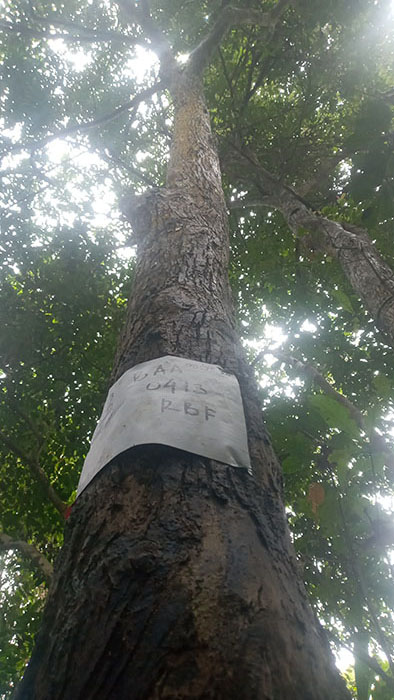 BAA
0413
RBF